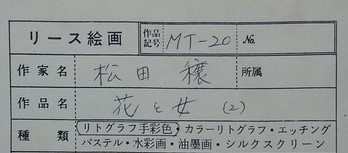 リース絵画 作品記号 MT-20 No.
作家名 松田 穣 所属
作品名 花と女 (2)
種類 リトグラフ手彩色・カラーリトグラフ・エッチング
パステル・水彩画・油墨画・シルクスクリーン